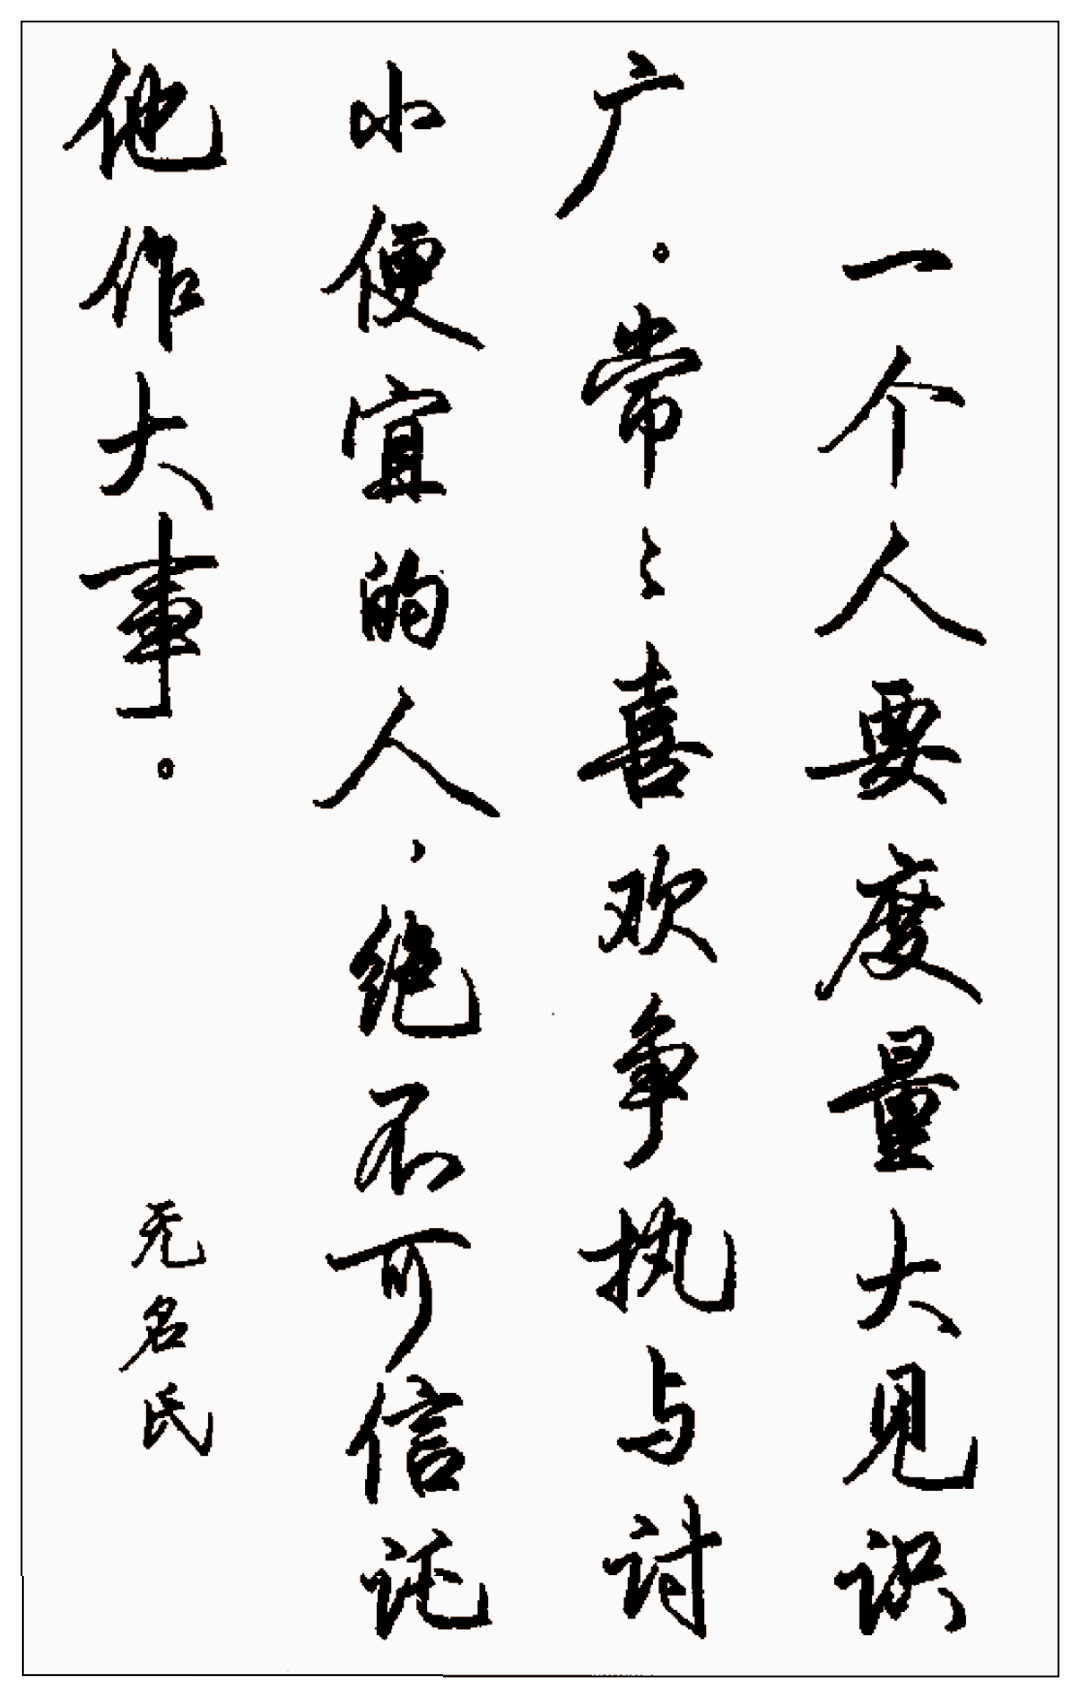 一个人要度量大见识
广。常〻喜欢争执与讨
小便宜的人，绝不可信托
他作大事。
无名氏